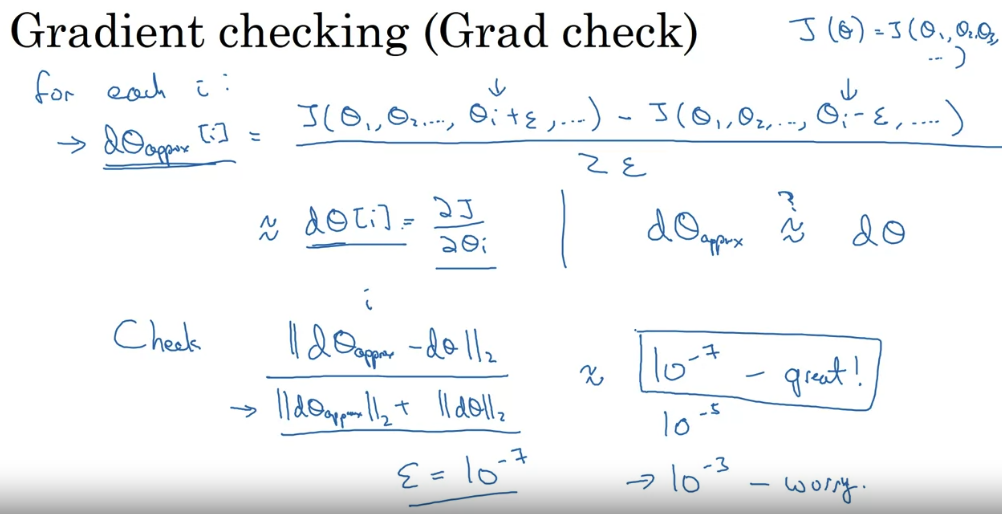 Gradient checking (Grad check)
J(θ) = J(θ₁, θ₂, θ₃, ...)
for each i:
→ dθapprox[i] = J(θ₁, θ₂, ..., θᵢ+ε, ...) - J(θ₁, θ₂, ..., θᵢ-ε, ....) / 2ε
≈ dθ[i] = ∂J/∂θᵢ | dθapprox ≈? dθ
i
Check ||dθapprox - dθ||₂ / ||dθapprox||₂ + ||dθ||₂ ≈ 10⁻⁷ - great!
10⁻⁵
ε = 10⁻⁷ → 10⁻³ - worry.